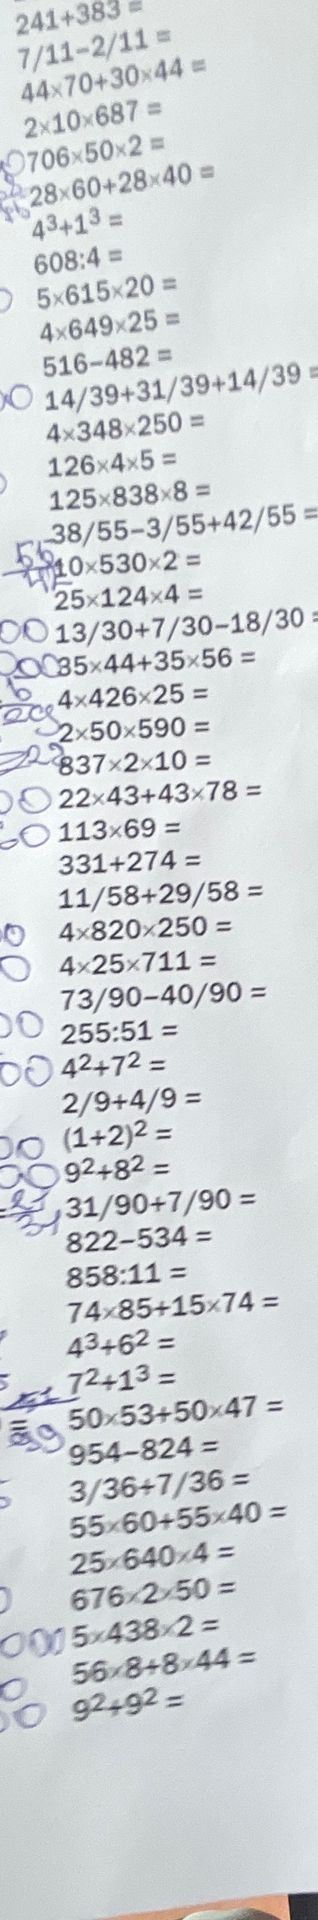 241+383 =
7/11−2/11 =
44×70+30×44 =
2×10×687 =
706×50×2 =
28×60+28×40 =
4³+1³ =
608:4 =
5×615×20 =
4×649×25 =
516−482 =
14/39+31/39+14/39 =
4×348×250 =
126×4×5 =
125×838×8 =
38/55−3/55+42/55 =
10×530×2 =
25×124×4 =
13/30+7/30−18/30 =
35×44+35×56 =
4×426×25 =
2×50×590 =
837×2×10 =
22×43+43×78 =
113×69 =
331+274 =
11/58+29/58 =
4×820×250 =
4×25×711 =
73/90−40/90 =
255:51 =
4²+7² =
2/9+4/9 =
(1+2)² =
9²+8² =
31/90+7/90 =
822−534 =
858:11 =
74×85+15×74 =
4³+6² =
7²+1³ =
50×53+50×47 =
954−824 =
3/36+7/36 =
55×60+55×40 =
25×640×4 =
676×2×50 =
5×438×2 =
56×8+8×44 =
9²+9² =